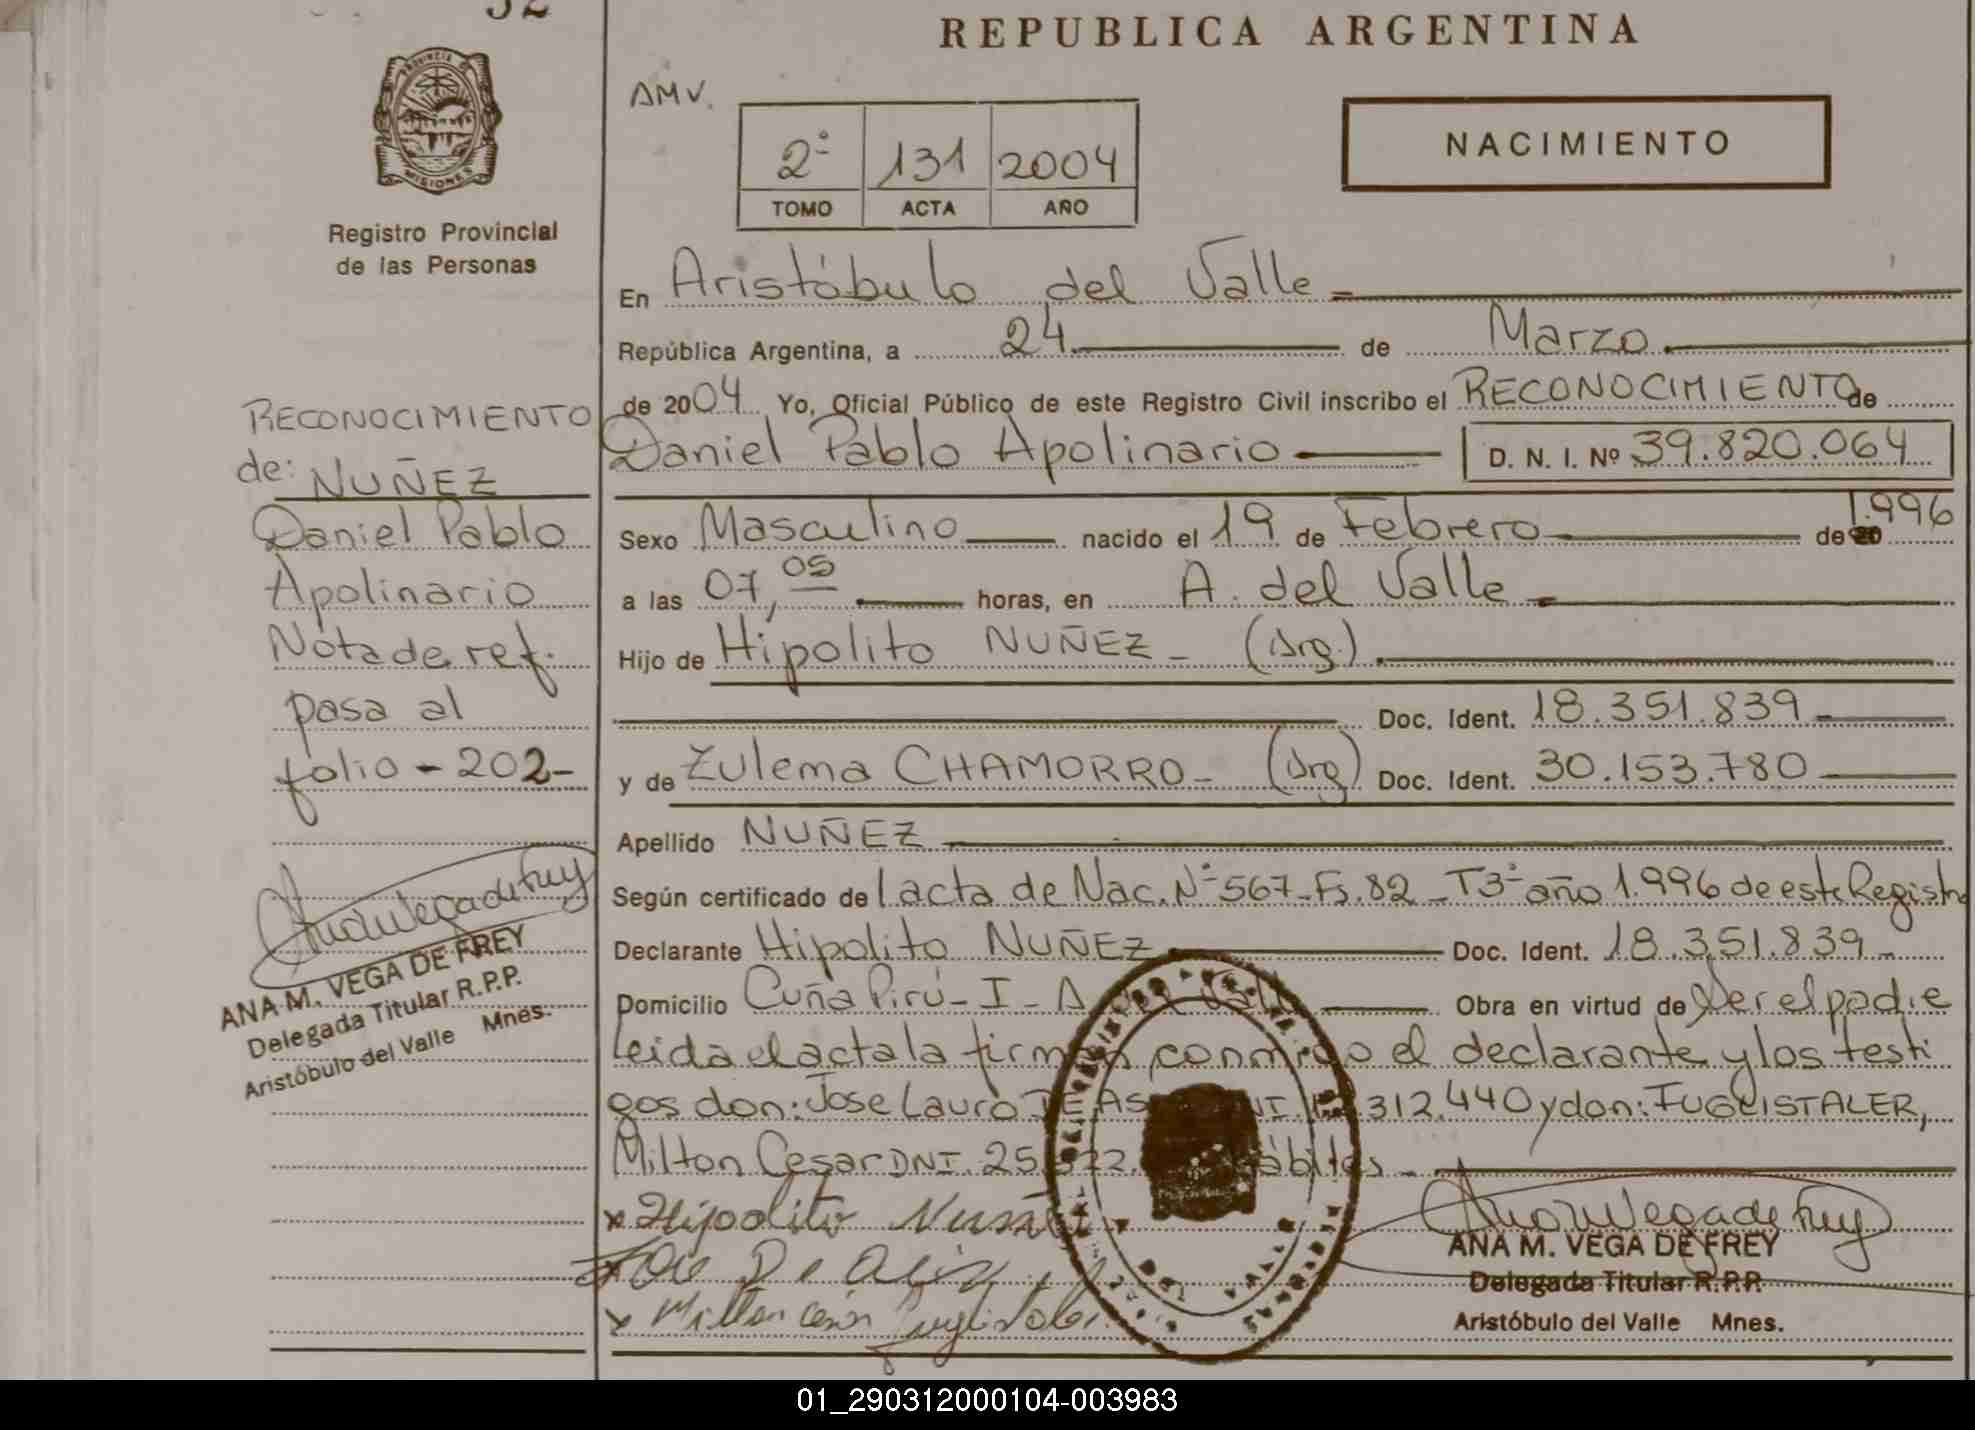 REPUBLICA ARGENTINA
PROVINCIA DE
MISIONES
Registro Provincial
de las Personas
AMV.
2º 131 2004
TOMO ACTA AÑO
NACIMIENTO
En Aristóbulo del Valle
República Argentina, a 24 de Marzo
de 2004 Yo, Oficial Público de este Registro Civil inscribo el RECONOCIMIENTO de
Daniel Pablo Apolinario D. N. I. Nº 39.820.064
Sexo Masculino nacido el 19 de Febrero de 1.996
a las 07,05 horas, en A. del Valle
Hijo de Hipolito NUÑEZ - (Arg.)
Doc. Ident. 18.351.839
y de Zulema CHAMORRO - (Arg) Doc. Ident. 30.153.780
Apellido NUÑEZ
Según certificado de lacta de Nac. Nº 567-Fs.82 - T3º año 1.996 de este Registro
Declarante Hipolito NUÑEZ Doc. Ident. 18.351.839
Domicilio Cuña Pirú - I - A Obra en virtud de Ser el padre
leida el acta la firman conmigo el declarante y los testi
gos don: Jose Lauro 312.440 y don: FUGLISTALER,
Milton Cesar DNI. 25
x Hipolito Nuñez
x Milton
ANA M. VEGA DE FREY
Delegada Titular R.P.P.
Aristóbulo del Valle Mnes.
RECONOCIMIENTO
de: NUÑEZ
Daniel Pablo
Apolinario
Nota de ref.
pasa al
folio - 202-
ANA M. VEGA DE FREY
Delegada Titular R.P.P.
Aristóbulo del Valle Mnes.
01_290312000104-003983